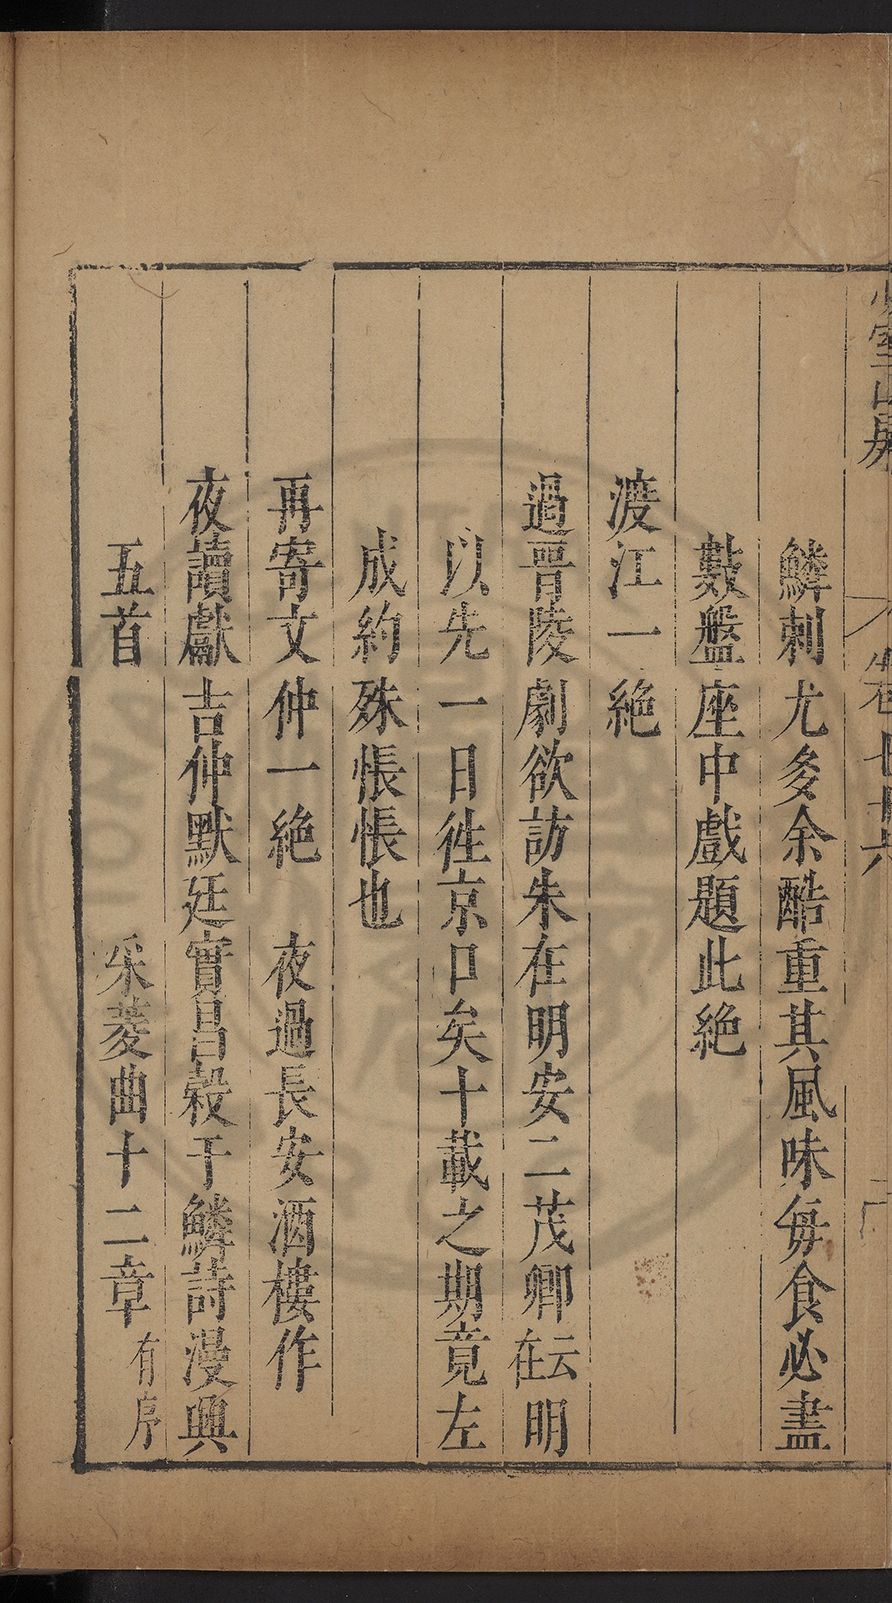 鱗刺尤多余酷重其風味每食必盡
數盤座中戲題此絶
渡江一絶
過晋陵劇欲訪朱在明安二茂卿云在明
以先一日徃京口矣十載之期竟左
成約殊悵悵也
再寄文仲一絶 夜過長安酒樓作
夜讀獻吉仲默廷實昌榖于鱗詩漫興
五首 采菱曲十二章有序
少室山房
卷七十六